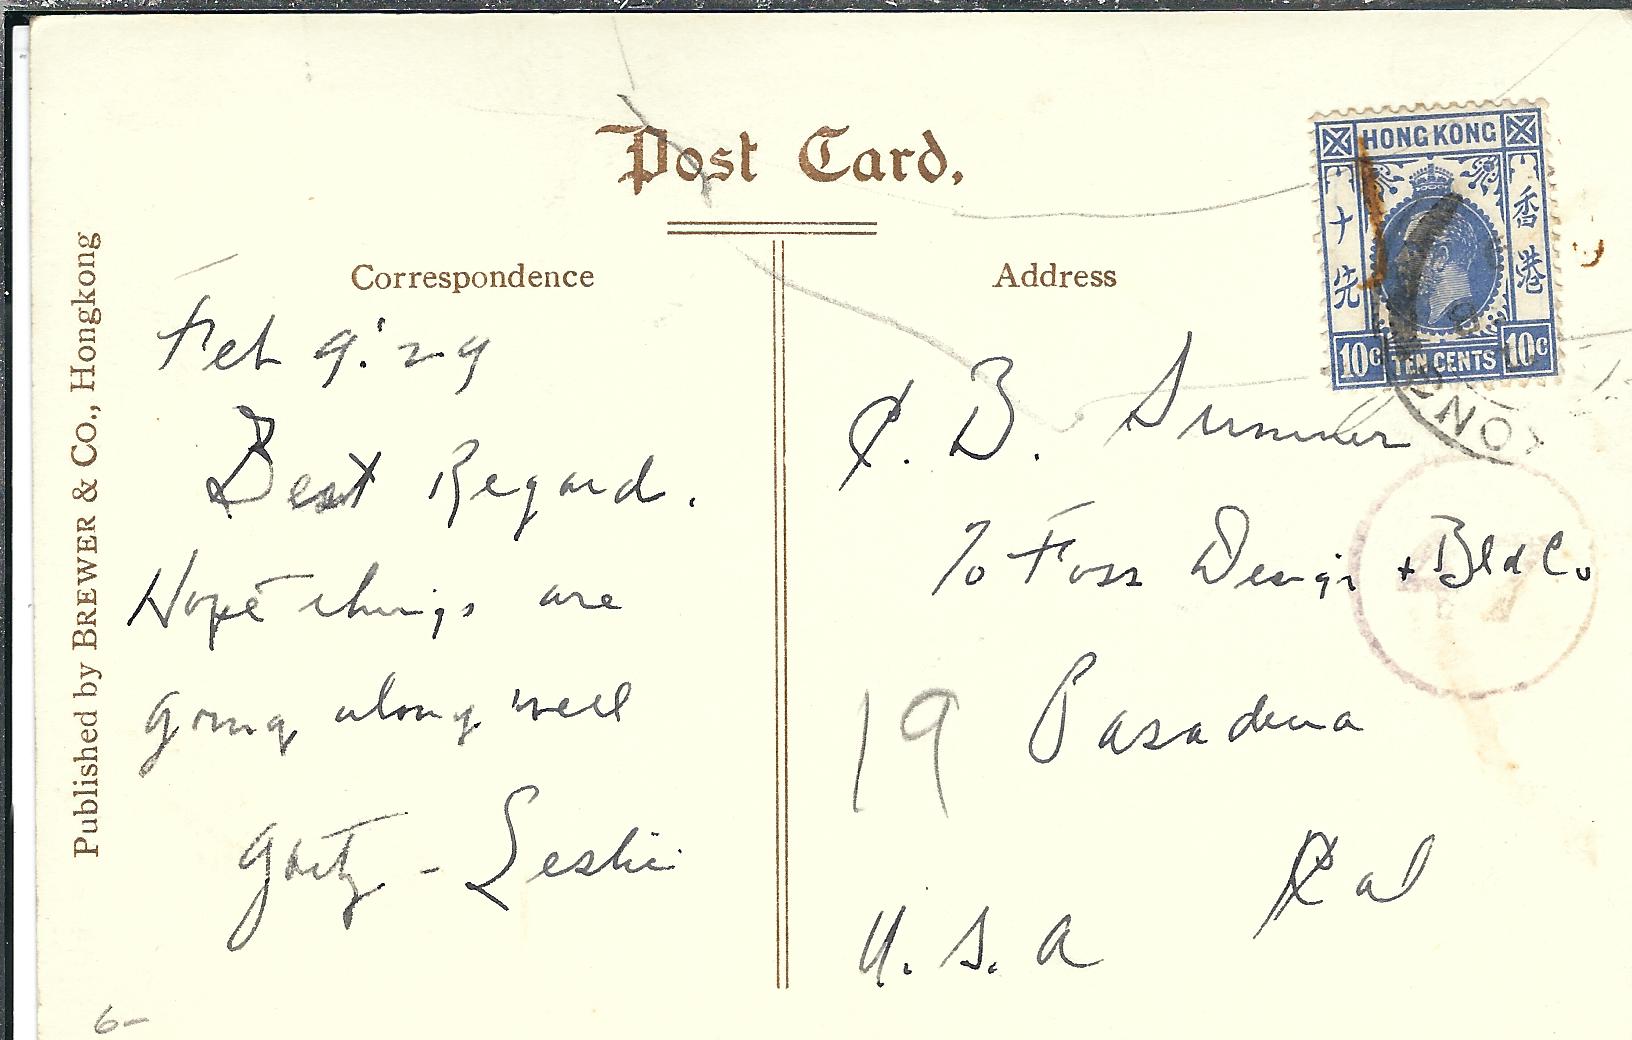 Post Card.
Correspondence
Feb 9. '29
Best Regard.
Hope things are
going along well
Leslie
Address
C. B. Sumner
% Foss Design + Bld Co.
Pasadena
Cal
U. S. A
19
HONG KONG
香港
十先
10c TEN CENTS 10c
Published by BREWER & CO., Hongkong
6-